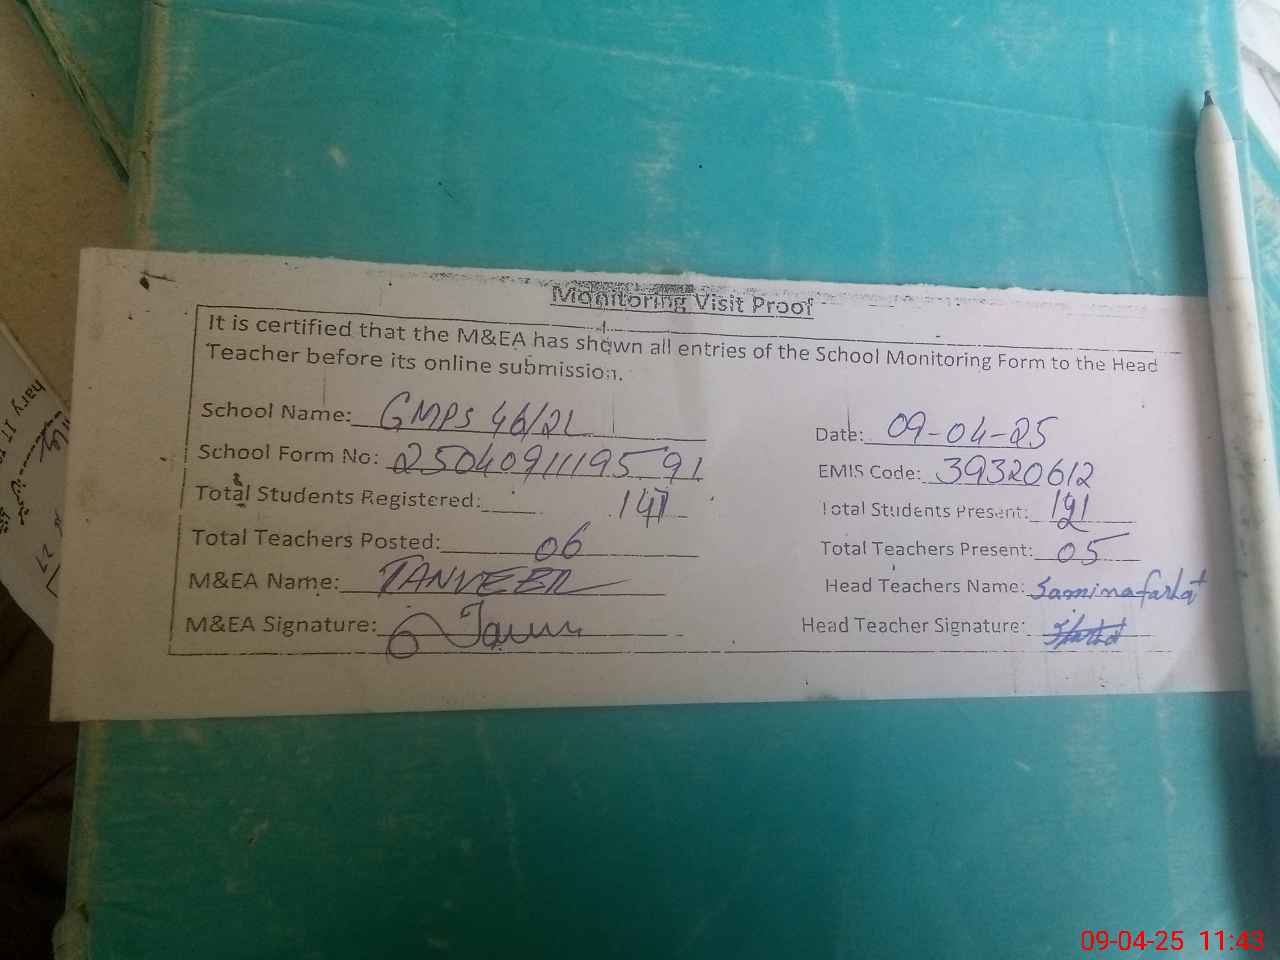 Monitoring Visit Proof
It is certified that the M&EA has shown all entries of the School Monitoring Form to the Head
Teacher before its online submission.
School Name: GMPS 46/2L
Date: 09-04-25
School Form No: 25040911119591
EMIS Code: 39320612
Total Students Registered:
Total Students Present:
Total Teachers Posted: 06
Total Teachers Present: 05
M&EA Name: TANVEER
Head Teachers Name: Samina farhat
M&EA Signature:
Head Teacher Signature:
hary IT
27
09-04-25 11:43